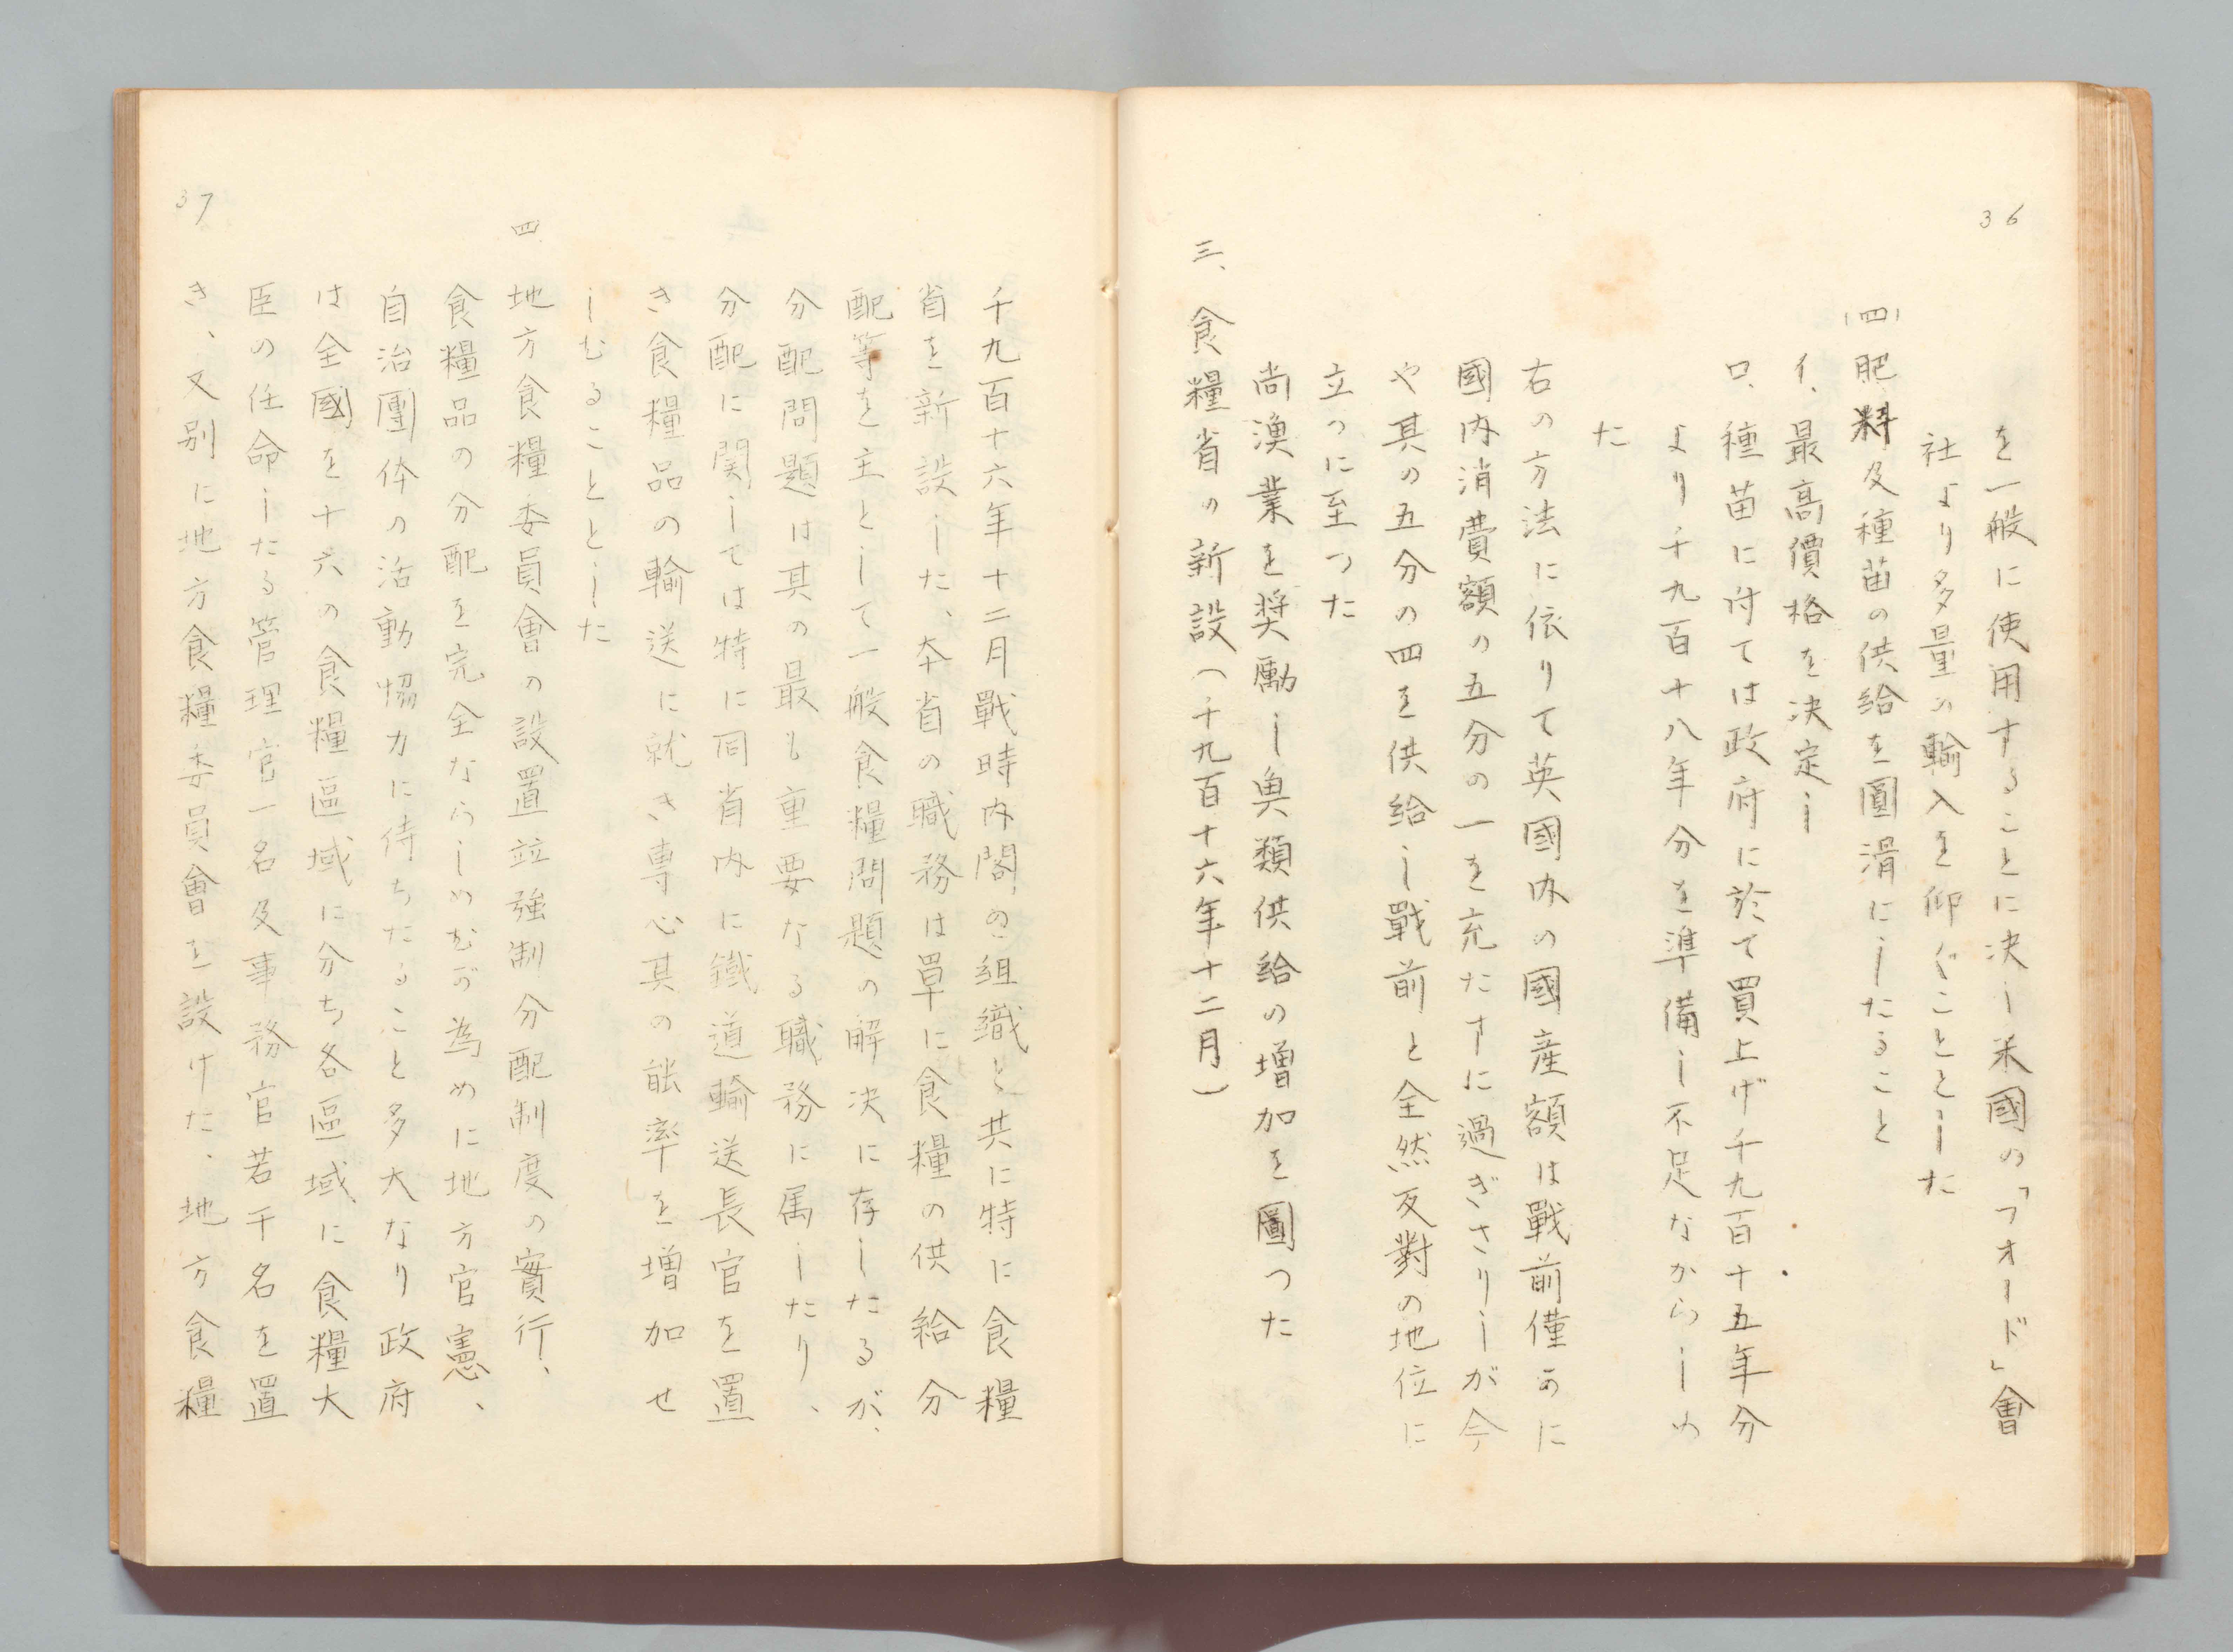 36
を一般に使用することに決し米國の「フオード」會
社より多量の輸入を仰ぐことゝした
(四)肥料及種苗の供給を圓滑にしたること
イ、最高價格を決定し
ロ、種苗に付ては政府に於て買上げ千九百十五年分
より千九百十八年分を準備し不足なからしめ
た
右の方法に依りて英國內の國産額は戰前僅かに
國內消費額の五分の一を充たすに過ぎさりしが今
や其の五分の四を供給し戰前と全然反對の地位に
立つに至つた
尚漁業を奬勵し魚類供給の増加を圖つた
三、食糧省の新設(千九百十六年十二月)
37
千九百十六年十二月戰時内閣の組織と共に特に食糧
省を新設した、本省の職務は單に食糧の供給分
配等を主として一般食糧問題の解決に存したるが、
分配問題は其の最も重要なる職務に属したり、
分配に関しては特に同省内に鐵道輸送長官を置
き食糧品の輸送に就き専心其の能率を増加せ
しむることとした
四、地方食糧委員會の設置並強制分配制度の實行、
食糧品の分配を完全ならしめむが為めに地方官憲、
自治團体の活動協力に待ちたること多大なり政府
は全國を十六の食糧區域に分ち各區域に食糧大
臣の任命したる管理官一名及事務官若干名を置
き、又別に地方食糧委員會を設けた、地方食糧